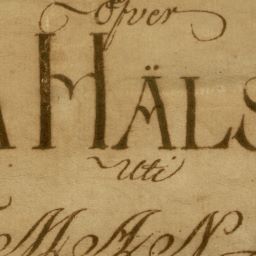 Öfver
A HÄLS
Uti
MAN